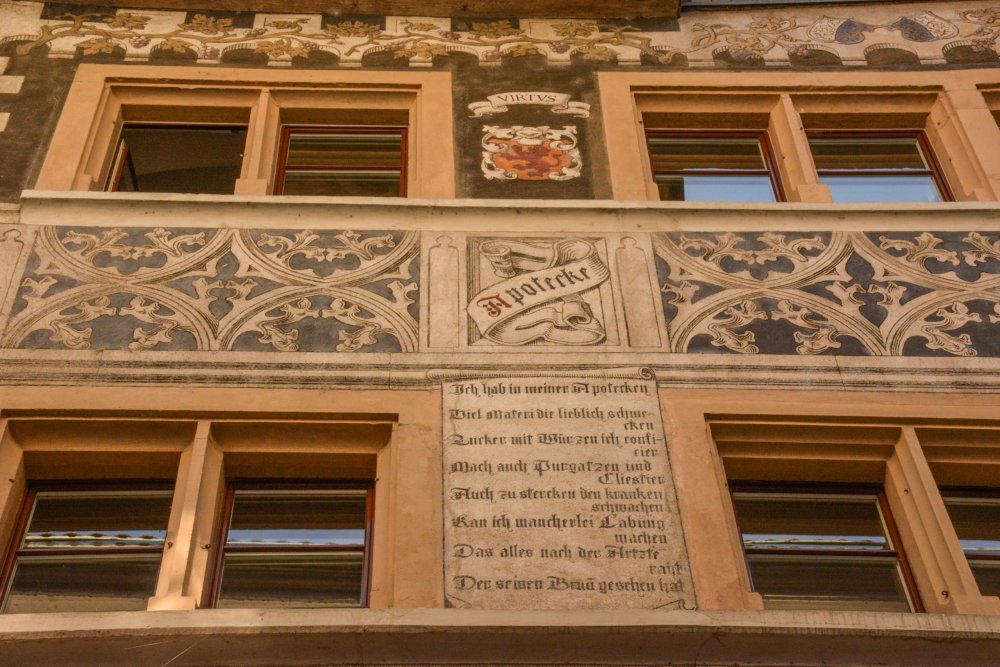 VIRTVS
Apotecke
Ich hab in meiner Apotecken
Viel Materi die lieblich schme-
cken
Zucker mit Würzen ich confi-
cier
Mach auch Purgatzen und
Cliestier
Auch zu stercken den kranken
schwachen
Kan ich mancherlei Labung
machen
Das alles nach der Artzte
raht
Der seinen Brun̄ gesehen hat